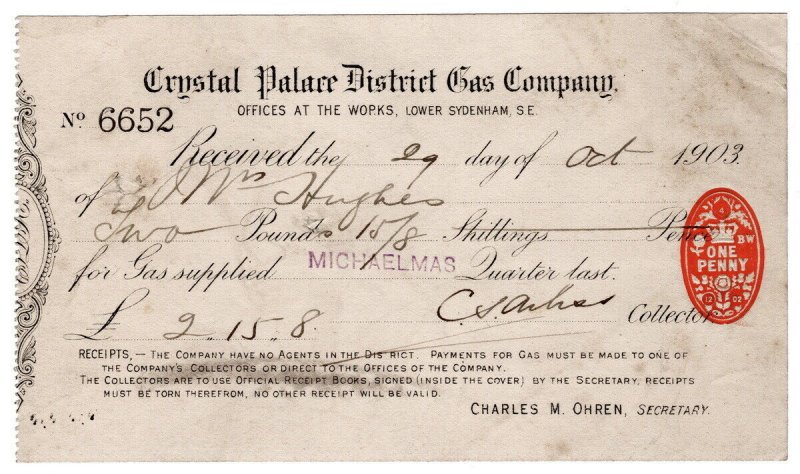 Crystal Palace District Gas Company.
OFFICES AT THE WORKS, LOWER SYDENHAM, S.E.
No 6652
Received the 29 day of Oct 1903
of Mrs Hughes
Two Pounds 15/8 Shillings Pence
for Gas supplied MICHAELMAS Quarter last.
Collector
£ 2,,15,,8.
4
BW
ONE
PENNY
12 02
RECEIPTS, — THE COMPANY HAVE NO AGENTS IN THE DISTRICT. PAYMENTS FOR GAS MUST BE MADE TO ONE OF
THE COMPANY'S COLLECTORS OR DIRECT TO THE OFFICES OF THE COMPANY.
THE COLLECTORS ARE TO USE OFFICIAL RECEIPT BOOKS, SIGNED (INSIDE THE COVER) BY THE SECRETARY, RECEIPTS
MUST BE TORN THEREFROM, NO OTHER RECEIPT WILL BE VALID.
CHARLES M. OHREN, SECRETARY.